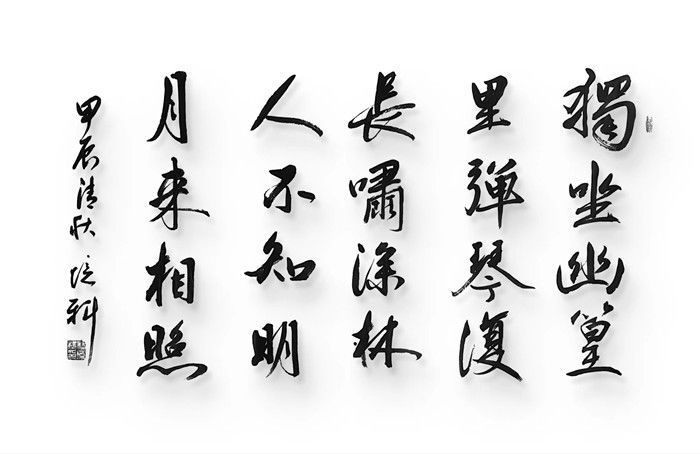 獨坐幽篁
里弹琴复
長嘯深林
人不知明
月来相照
甲辰清秋 培科